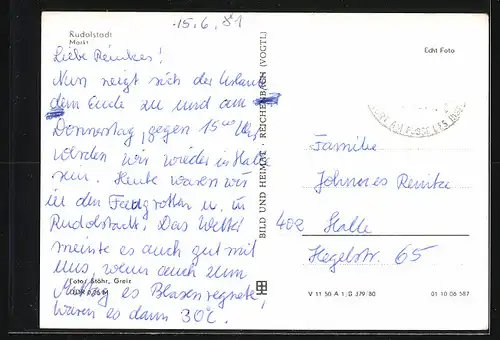 15.6.81
Rudolstadt
Markt
Liebe Reinkes!
Nun neigt sich der Urlaub
dem Ende zu und am
Donnerstag, gegen 15⁰⁰ Uhr,
werden wir wieder in Halle
sein. Heute waren wir
in den Feengrotten u. in
Rudolstadt. Das Wetter
meinte es auch gut mit
uns, wenn auch zum
Mittag es Blasen regnete,
waren es dann 30°C.
Foto: Stöhr, Greiz
BILD UND HEIMAT · REICHENBACH (VOGTL)
Echt Foto
Familie
Johannes Reinke
402 Halle
Hegelstr. 65
V 11 50 A 1/B 379/80
01 10 06 587